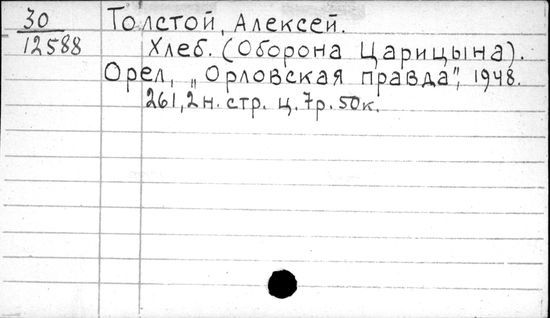 30
12588
Толстой, Алексей.
Хлеб. (Оборона Царицына).
Орел, „Орловская правда", 1948.
261, 2 н. стр. ц. 7 р. 50 к.